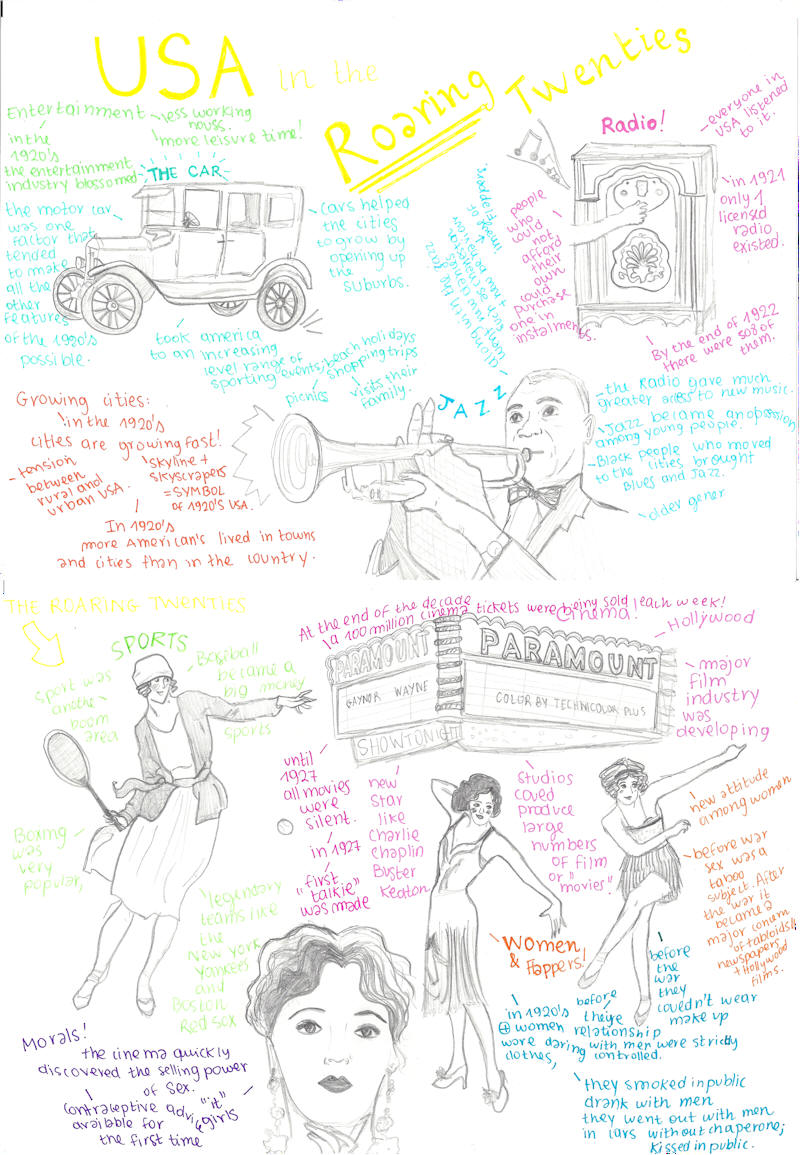 USA in the
Roaring Twenties
Entertainment
in the
1920's
the entertainment
industry blossomed
less working
more leisure time!
THE CAR
the motor car
was one
factor that
tended
to make
all the
other
features
of the 1920's
possible.
cars helped
the cities
to grow by
opening up
the
suburbs.
took america
to an increasing
level range of
sporting events, beach holidays
shopping trips
picnics
visits their
family.
Radio!
everyone in
USA listened
to it.
in 1921
only 1
licensed
radio
existed.
By the end of 1922
there were 508 of
them.
people
who
could
not
afford
their
own
could
purchase
one in
instalments.
JAZZ
along with the jazz
the Radio gave much
greater access to new music.
Jazz became an
among young people.
Black people who moved
to the cities brought
Blues and Jazz.
older gener
Growing cities:
in the 1920's
cities are growing fast!
tension
between
rural and
urban USA.
skyline +
skyscrapers
= SYMBOL
of 1920's USA.
In 1920's
more American's lived in towns
and cities than in the country.
THE ROARING TWENTIES
SPORTS
Sport was
another
boom
area
Baseball
became a
big money
sports
Boxing
was
very
popular,
legendary
teams like
the
New York
Yankees
and
Boston
Red sox
At the end of the decade
a 100 million cinema tickets were being sold each week!
Cinema!
Hollywood
major
film
industry
was
developing
PARAMOUNT
PARAMOUNT
GAYNOR WAYNE
COLOR BY TECHNICOLOR PLUS
SHOWTONIGHT
until
1927
all movies
were
silent.
in 1927
"first
talkie"
was made
new
star
like
Charlie
Chaplin
Buster
Keaton
studios
could
produce
large
numbers
of film
or "movies"!
Women
& Flappers!
new attitude
among women
before war
sex was a
taboo
subject. After
the war it
became a
major concern
of tabloids
newspapers
+ Hollywood
films.
before
the
war
they
couldn't wear
make up
in 1920's
women
wore daring
clothes,
before
relationship
with men were strictly
controlled.
they smoked in public
drank with men
they went out with men
in cars without chaperone;
kissed in public.
Morals!
the cinema quickly
discovered the selling power
of sex.
contraceptive
availble for
the first time
"it"
girls